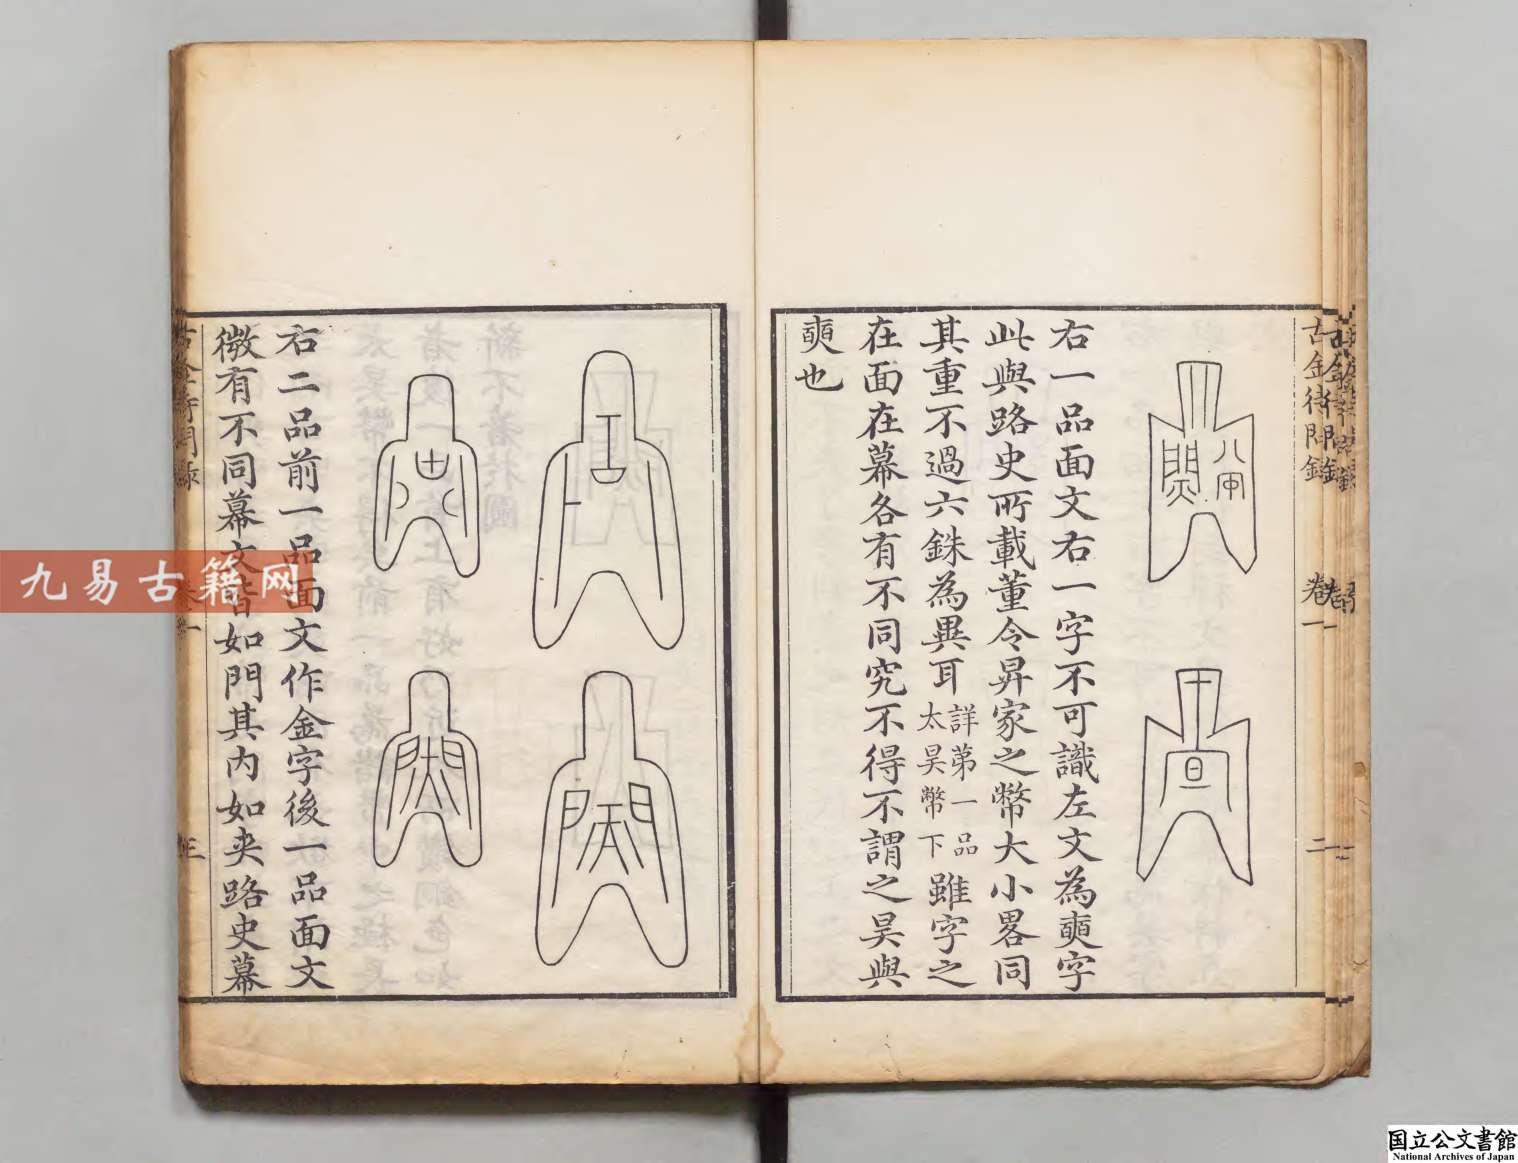 古金待問錄
卷一
二
右一品面文右一字不可識左文為奭字
此與路史所載董令昇家之幣大小畧同
其重不過六銖為異耳詳苐一品太昊幣下雖字之
在面在幕各有不同究不得不謂之昊與
奭也
右二品前一品面文作金字後一品面文
微有不同幕文皆如門其内如夾路史幕
三
九易古籍网
国立公文書館
National Archives of Japan